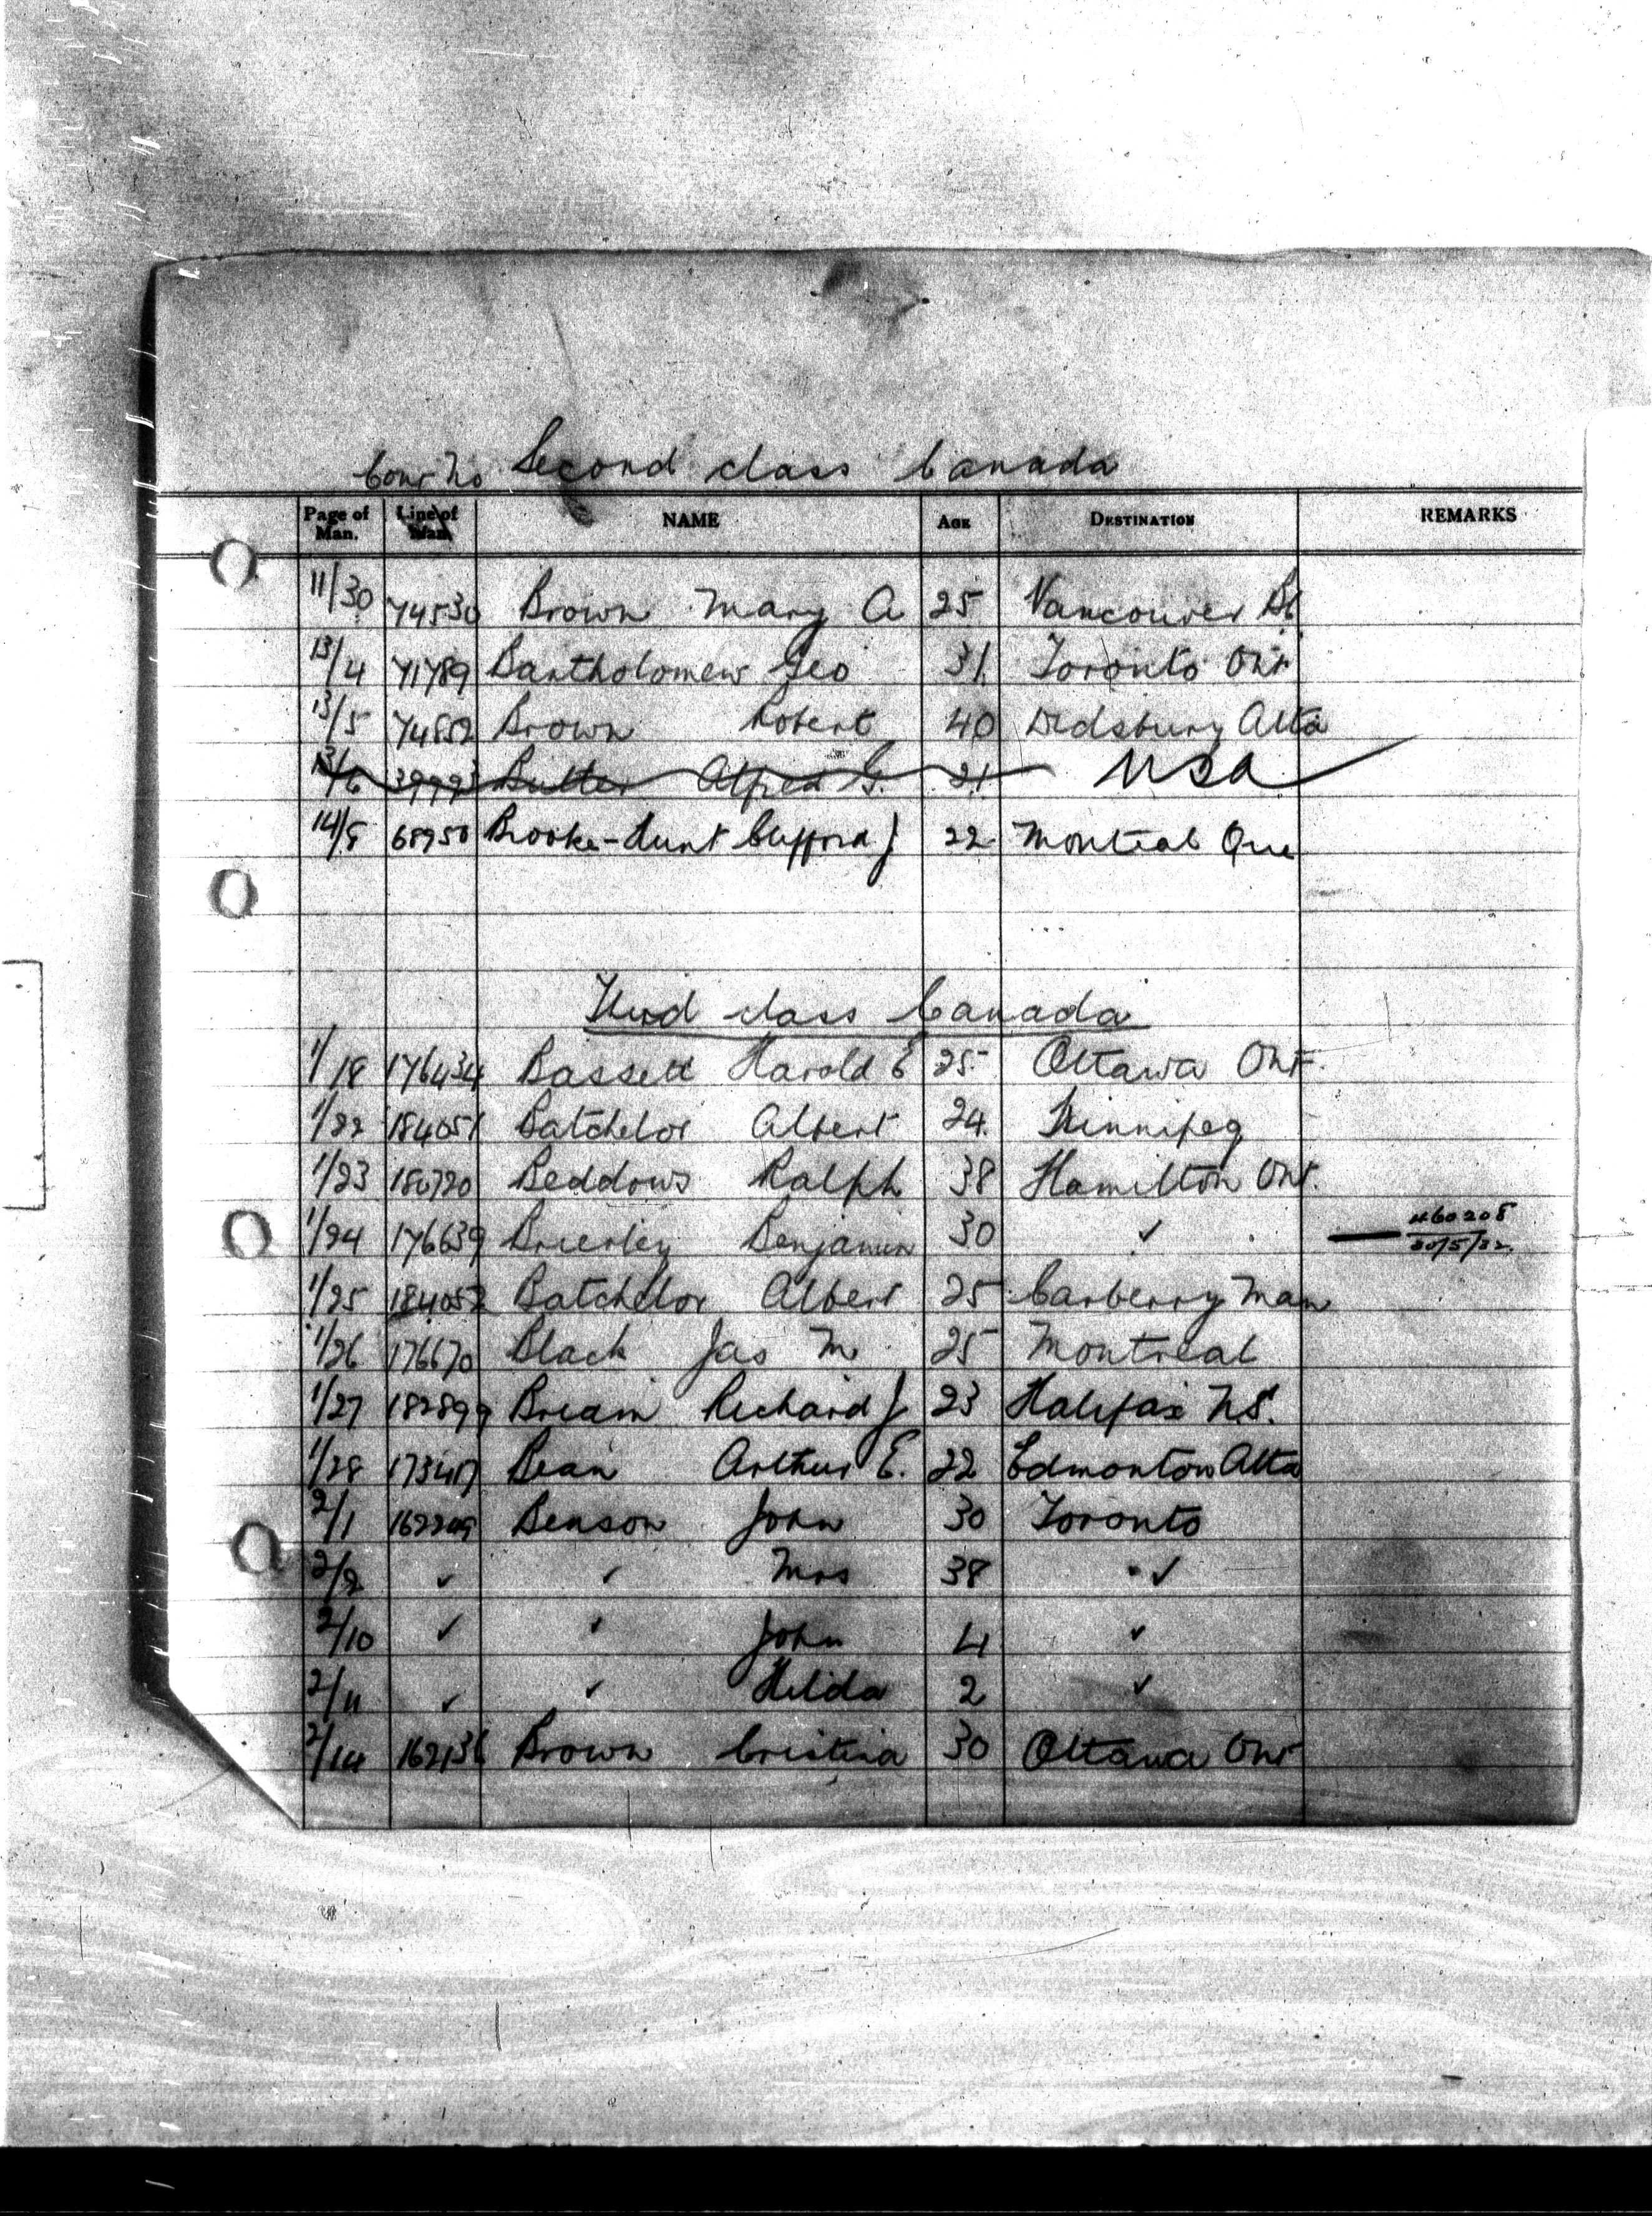 Cont No Second class Canada
Page of Man. Line of Man. NAME AGE DESTINATION REMARKS
11/30 74530 Brown Mary A 25 Vancouver BC
13/4 71789 Bartholomew Geo 31 Toronto Ont
13/5 74852 Brown Robert 40 Didsbury Alta
13/6 39993 Butler Alfred G. 21 USA
14/8 68950 Brooke-Hunt Clifford J 22 Montreal Que
Third class Canada
1/18 176434 Bassett Harold E 25 Ottawa Ont.
1/22 184051 Batchelor Albert 24 Winnipeg
1/23 180720 Beddows Ralph 38 Hamilton Ont.
1/24 176639 Brierley Benjamin 30 ✓ — 460208
30/5/32
1/25 184052 Batchelor Albert 25 Carberry Man
1/26 176670 Black Jas M 25 Montreal
1/27 182899 Bream Richard J 23 Halifax N.S.
1/28 173417 Bean Arthur E. 22 Edmonton Alta
2/1 162209 Benson John 30 Toronto
2/9 ✓ ✓ Mrs 38 ✓
2/10 ✓ ✓ John 4 ✓
2/11 ✓ ✓ Hilda 2 ✓
2/14 162136 Brown Cristina 30 Ottawa Ont